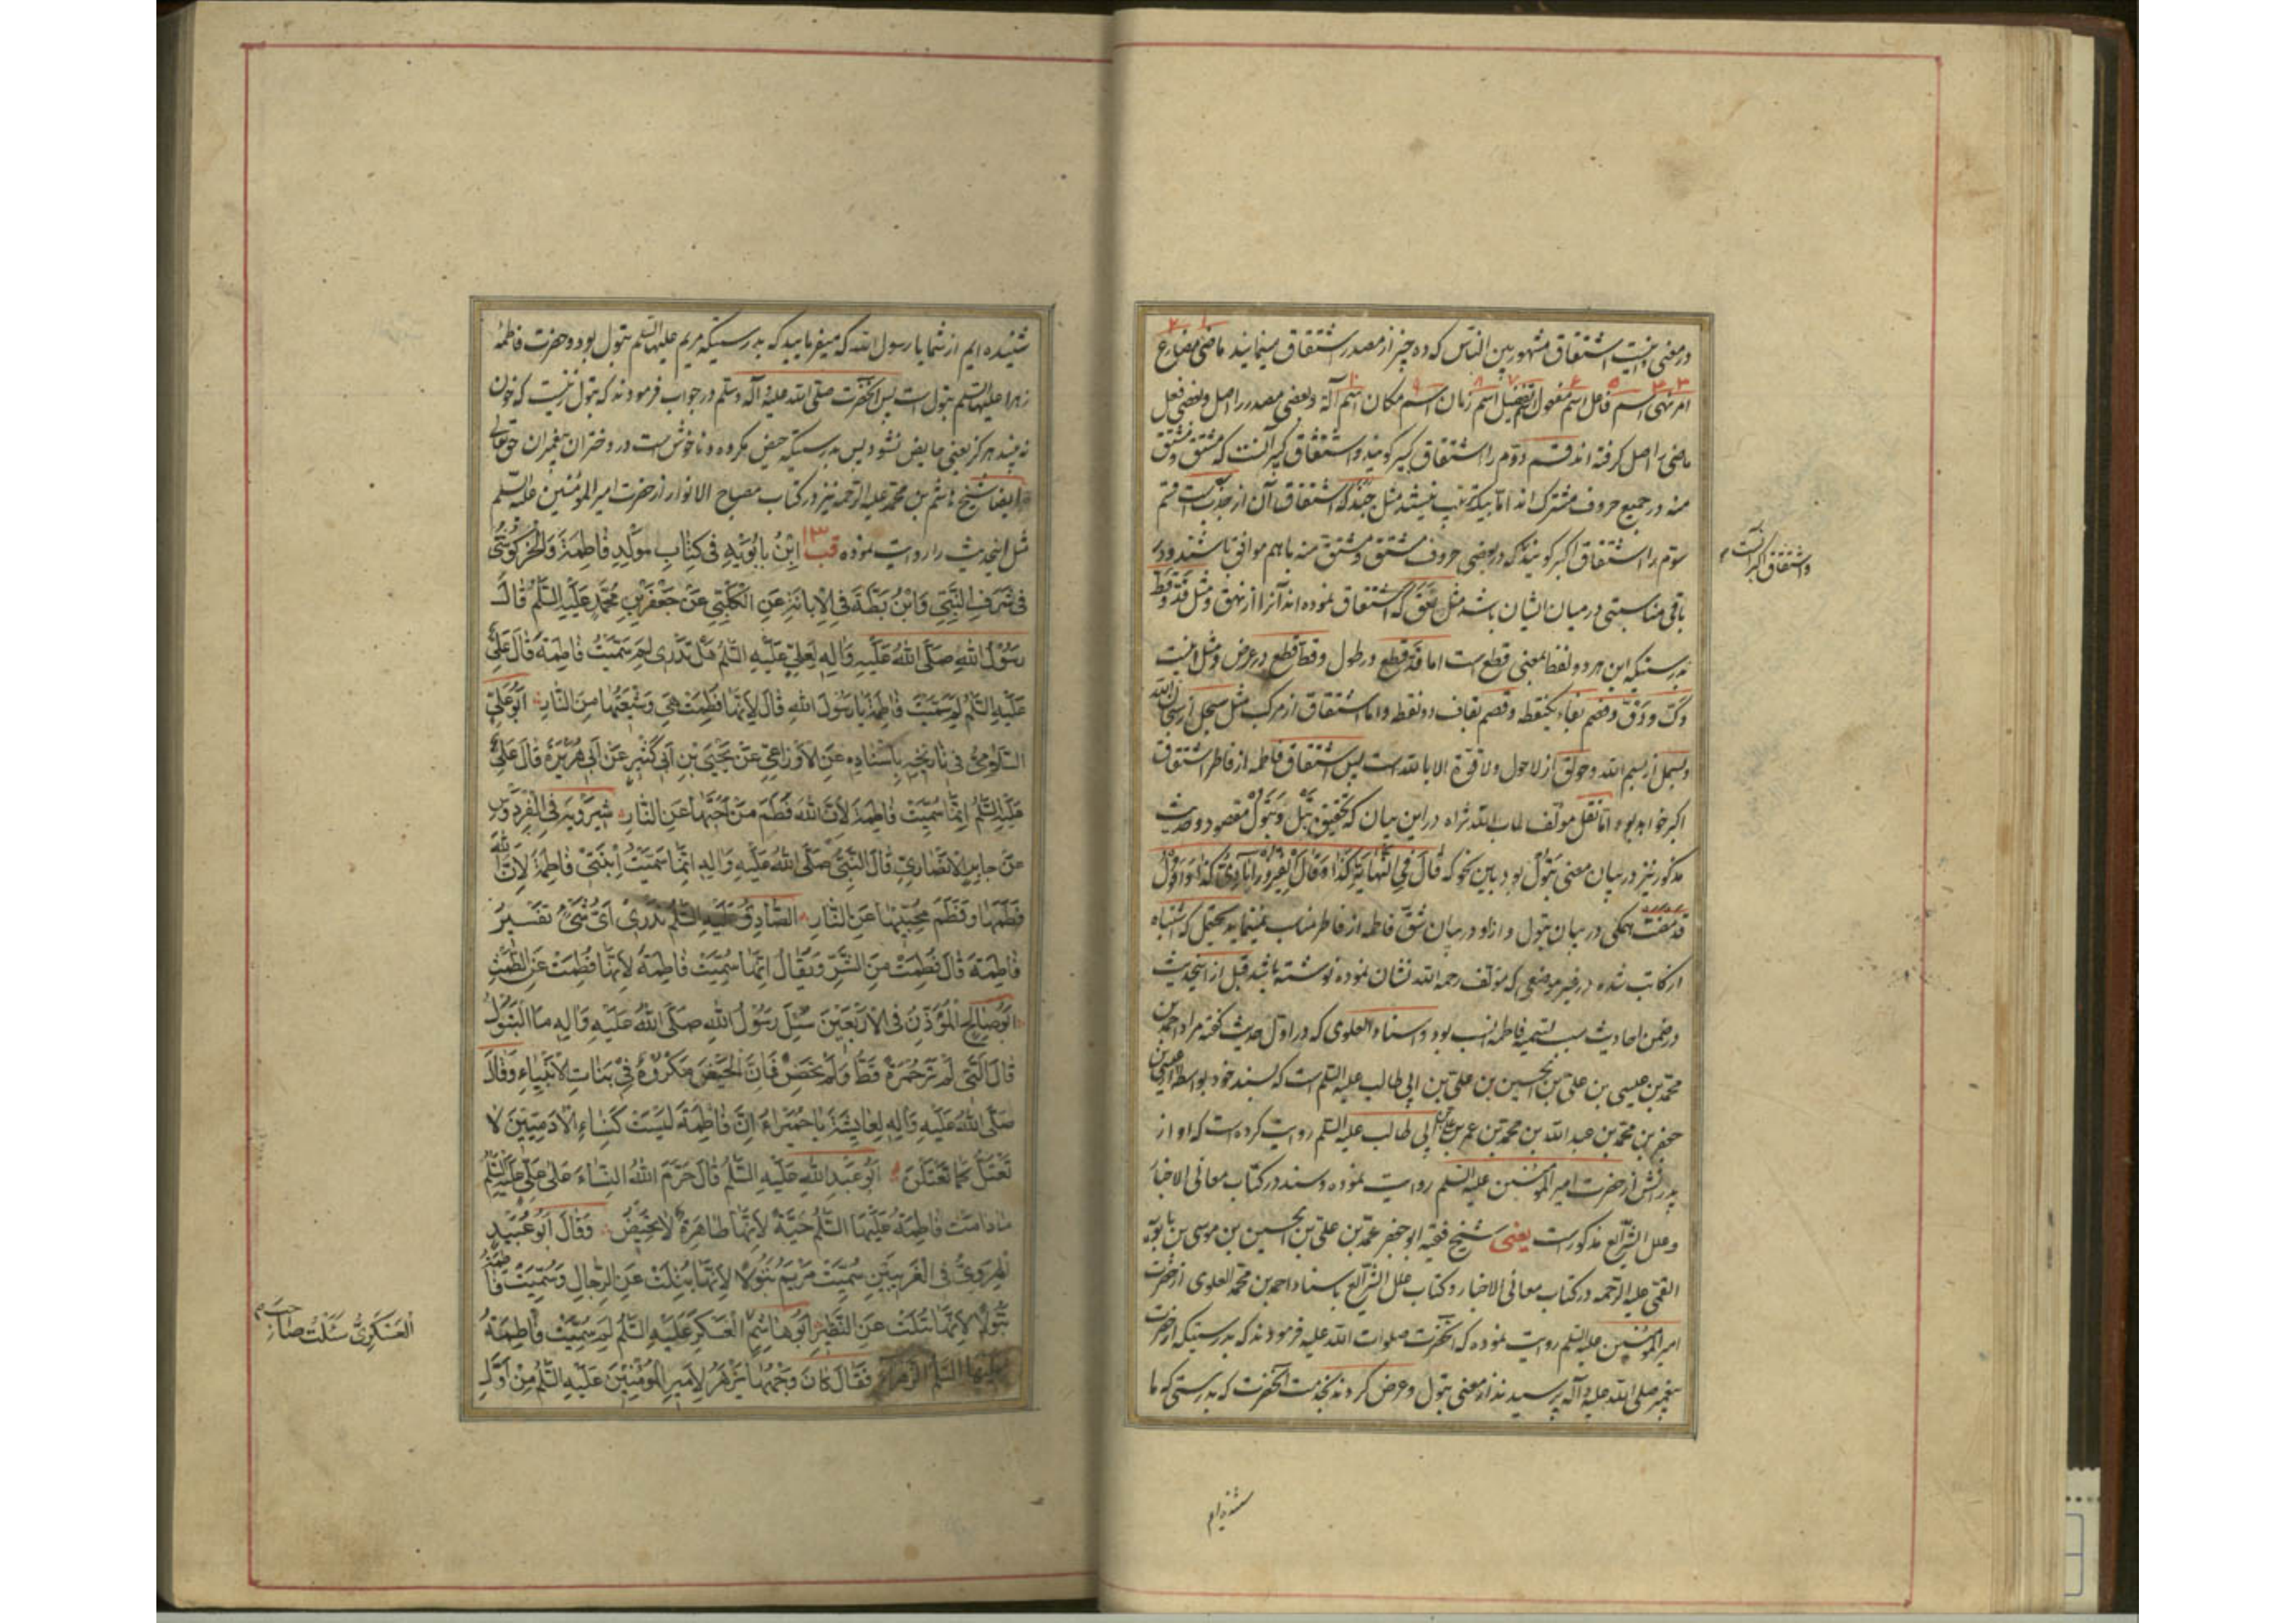 در معنی اینست اشتقاق مشهور بین الناس که ده چیز از مصدر اشتقاق مینمایند ماضی مضارع
امر نهی اسم فاعل اسم مفعول اسم تفضیل اسم زمان اسم مکان اسم آلة و بعضی مصدر را اصل و بعضی فعل
ماضی را اصل گرفته اند قسم دوّم را اشتقاق کبیر گویند و اشتقاق کبیر آنست که مشتق و مشتق
منه در جمیع حروف مشترک اند اما بیک ترتیب نیستند مثل جبذ که اشتقاق آن از جذبست قسم
سوّم را اشتقاق اکبر گویند که در بعضی حروف مشتق و مشتق منه با هم موافق باشند و در
واشتقاق اکبر آنست
باقی مناسبتی در میان ایشان باشد مثل نعق که اشتقاق نموده اند آنرا از نهق و مثل قد و قط
بدرستیکه این هر دو لفظ بمعنی قطع است اما قد قطع در طول و قط قطع در عرض و مثل اینست
دک و دق و فصم بفاء یکنقطه و قصم بقاف دو نقطه و اما اشتقاق از مرکب مثل سبحل از سبحان الله
و بسمل از بسم الله و حولق از لا حول ولا قوة الا بالله است پس اشتقاق فاطمه از فاطر اشتقاق
اکبر خواهد بود اما نقل مولف طاب الله ثراه در این بیان که تحقیق بتل و بتول مقصود و حدیث
مذکور نیز در بیان معنی بتول بود باین نحو که قال فی النهایة کذا و قال الفیروزابادی کذا و اقول
قد مضت همگی در بیان بتول و از او در بیان شق فاطمه از فاطر مناسب نمینماید یحتمل که اشتباه
از کاتب شده در غیر موضعی که مؤلف رحمه الله نشان نموده نوشته باشد قبل از اینحدیث
در ضمن احادیث سبب تسمیه فاطمه انسب بود و اسناد العلوی که در اول حدیث گفته مراد احمد بن
محمّد بن عیسی بن علی بن الحسین بن علی بن ابی طالب علیه السّلم است که بسند خود بواسطه
جعفر بن محمّد بن عبد الله بن محمّد بن عمر بن علی بن ابی طالب علیه السّلم روایت کرده است که او از
پدرانش از حضرت امیر المؤمنین علیه السّلم روایت نموده و سند در کتاب معانی الاخبار
و علل الشّرائع مذکور است یعنی شیخ فقیه ابو جعفر محمّد بن علی بن الحسین بن موسی بن بابویه
القمّی علیه الرّحمه در کتاب معانی الاخبار و کتاب علل الشّرائع باسناد احمد بن محمّد العلوی از حضرت
امیر المؤمنین علیه السّلم روایت نموده که آنحضرت صلوات الله علیه فرمودند که بدرستیکه از حضرت
پیغمبر صلی الله علیه و آله پرسیدند از معنی بتول و عرض کردند بخدمت آنحضرت که بدرستی که ما
شنیده ایم
شنیده ایم از شما یا رسول الله که میفرمایید که بدرستیکه مریم علیها السّلم بتول بود و حضرت فاطمهٔ
زهرا علیها السّلم بتول است پس آنحضرت صلی الله علیه و آله و سلّم در جواب فرمودند که بتول زنیست که خون
نه بیند هرگز یعنی حایض نشود پس بدرستیکه حیض مکروه و ناخوش است در دختران پیغمبران حق تعالی
ایضا شیخ هاشم بن محمّد علیه الرّحمه نیز در کتاب مصباح الانوار از حضرت امیر المؤمنین علیه السّلم
مثل اینحدیث را روایت نموده ۱۳ قب اِبْنُ بابُوَیْهِ فی کِتابِ مَوْلِدِ فاطِمَةَ وَالْخَرْکُوشیُّ
فی شَرَفِ النَّبِیِّ وَابْنُ بَطَّةَ فِی الْاِبانَةِ عَنِ الْکَلْبِیِّ عَنْ جَعْفَرِ بْنِ مُحَمَّدٍ عَلَیْهِ السَّلمُ قالَ
رَسُولُ اللهِ صَلَّی اللهُ عَلَیْهِ وَالِهِ لِعَلِیٍّ عَلَیْهِ السَّلمُ هَلْ تَدْری لِمَ سُمِّیَتْ فاطِمَةَ قالَ عَلِیٌّ
عَلَیْهِ السَّلمُ لِمَ سُمِّیَتْ فاطِمَةَ یا رَسُولَ اللهِ قالَ لِاَنَّها فُطِمَتْ هِیَ وَشیعَتُها مِنَ النّارِ اَبُو عَلِیٍّ
السَّلامیُّ فی تاریخِهِ بِاِسْنادِهِ عَنِ الْاَوْزاعِیِّ عَنْ یَحْیَی بْنِ اَبی کَثیرٍ عَنْ اَبی هُرَیْرَةَ قالَ عَلِیٌّ
عَلَیْهِ السَّلمُ اِنَّما سُمِّیَتْ فاطِمَةَ لِاَنَّ اللهَ فَطَمَ مَنْ اَحَبَّها عَنِ النّارِ شیرَوَیْهِ فِی الْفِرْدَوْسِ
عَنْ جابِرٍ الْاَنْصاریِّ قالَ النَّبِیُّ صَلَّی اللهُ عَلَیْهِ وَالِهِ اِنَّما سَمَّیْتُ اِبْنَتی فاطِمَةَ لِاَنَّ اللهَ
فَطَمَها وَفَطَمَ مُحِبّیها عَنِ النّارِ الصّادِقُ عَلَیْهِ السَّلمُ تَدْری اَیُّ شَیْءٍ تَفْسیرُ
فاطِمَةَ قالَ فُطِمَتْ مِنَ الشَّرِّ وَیُقالُ اِنَّما سُمِّیَتْ فاطِمَةَ لِاَنَّها فُطِمَتْ عَنِ الطَّمْثِ
اَبُو صالِحٍ الْمُؤَذِّنُ فِی الْاَرْبَعینَ سُئِلَ رَسُولُ اللهِ صَلَّی اللهُ عَلَیْهِ وَالِهِ مَا الْبَتُولُ
قالَ الَّتی لَمْ تَرَ حُمْرَةً قَطُّ وَلَمْ تَحِضْ فَاِنَّ الْحَیْضَ مَکْرُوهٌ فی بَناتِ الْاَنْبِیاءِ وَقالَ
صَلَّی اللهُ عَلَیْهِ وَالِهِ لِعایِشَةَ یا حُمَیْراءُ اِنَّ فاطِمَةَ لَیْسَتْ کَنِساءِ الْادَمِیّینَ لا
تَعْتَلُّ کَما تَعْتَلِلْنَ اَبُو عَبْدِ اللهِ عَلَیْهِ السَّلمُ قالَ حَرَّمَ اللهُ النِّساءَ عَلی عَلِیٍّ عَلَیْهِ السَّلمُ
ما دامَتْ فاطِمَةُ عَلَیْهَا السَّلمُ حَیَّةً لِاَنَّها طاهِرَةٌ لا تَحیضُ وَقالَ اَبُو عُبَیْدٍ
الْهَرَوِیُّ فِی الْغَریبَیْنِ سُمِّیَتْ مَرْیَمُ بَتُولًا لِاَنَّها بُتِلَتْ عَنِ الرِّجالِ وَسُمِّیَتْ فاطِمَةُ
بَتُولًا لِاَنَّها بُتِلَتْ عَنِ النَّظیرِ اَبُو هاشِمٍ الْعَسْکَرِ عَلَیْهِ السَّلمُ لِمَ سُمِّیَتْ فاطِمَةُ
الْعَسْکَرِیُّ سَئَلْتُ صاحِبَ
عَلَیْهَا السَّلمُ الزَّهْراءَ فَقالَ کانَ وَجْهُها یَزْهَرُ لِاَمیرِ الْمُؤْمِنینَ عَلَیْهِ السَّلمُ مِنْ اَوَّلِ